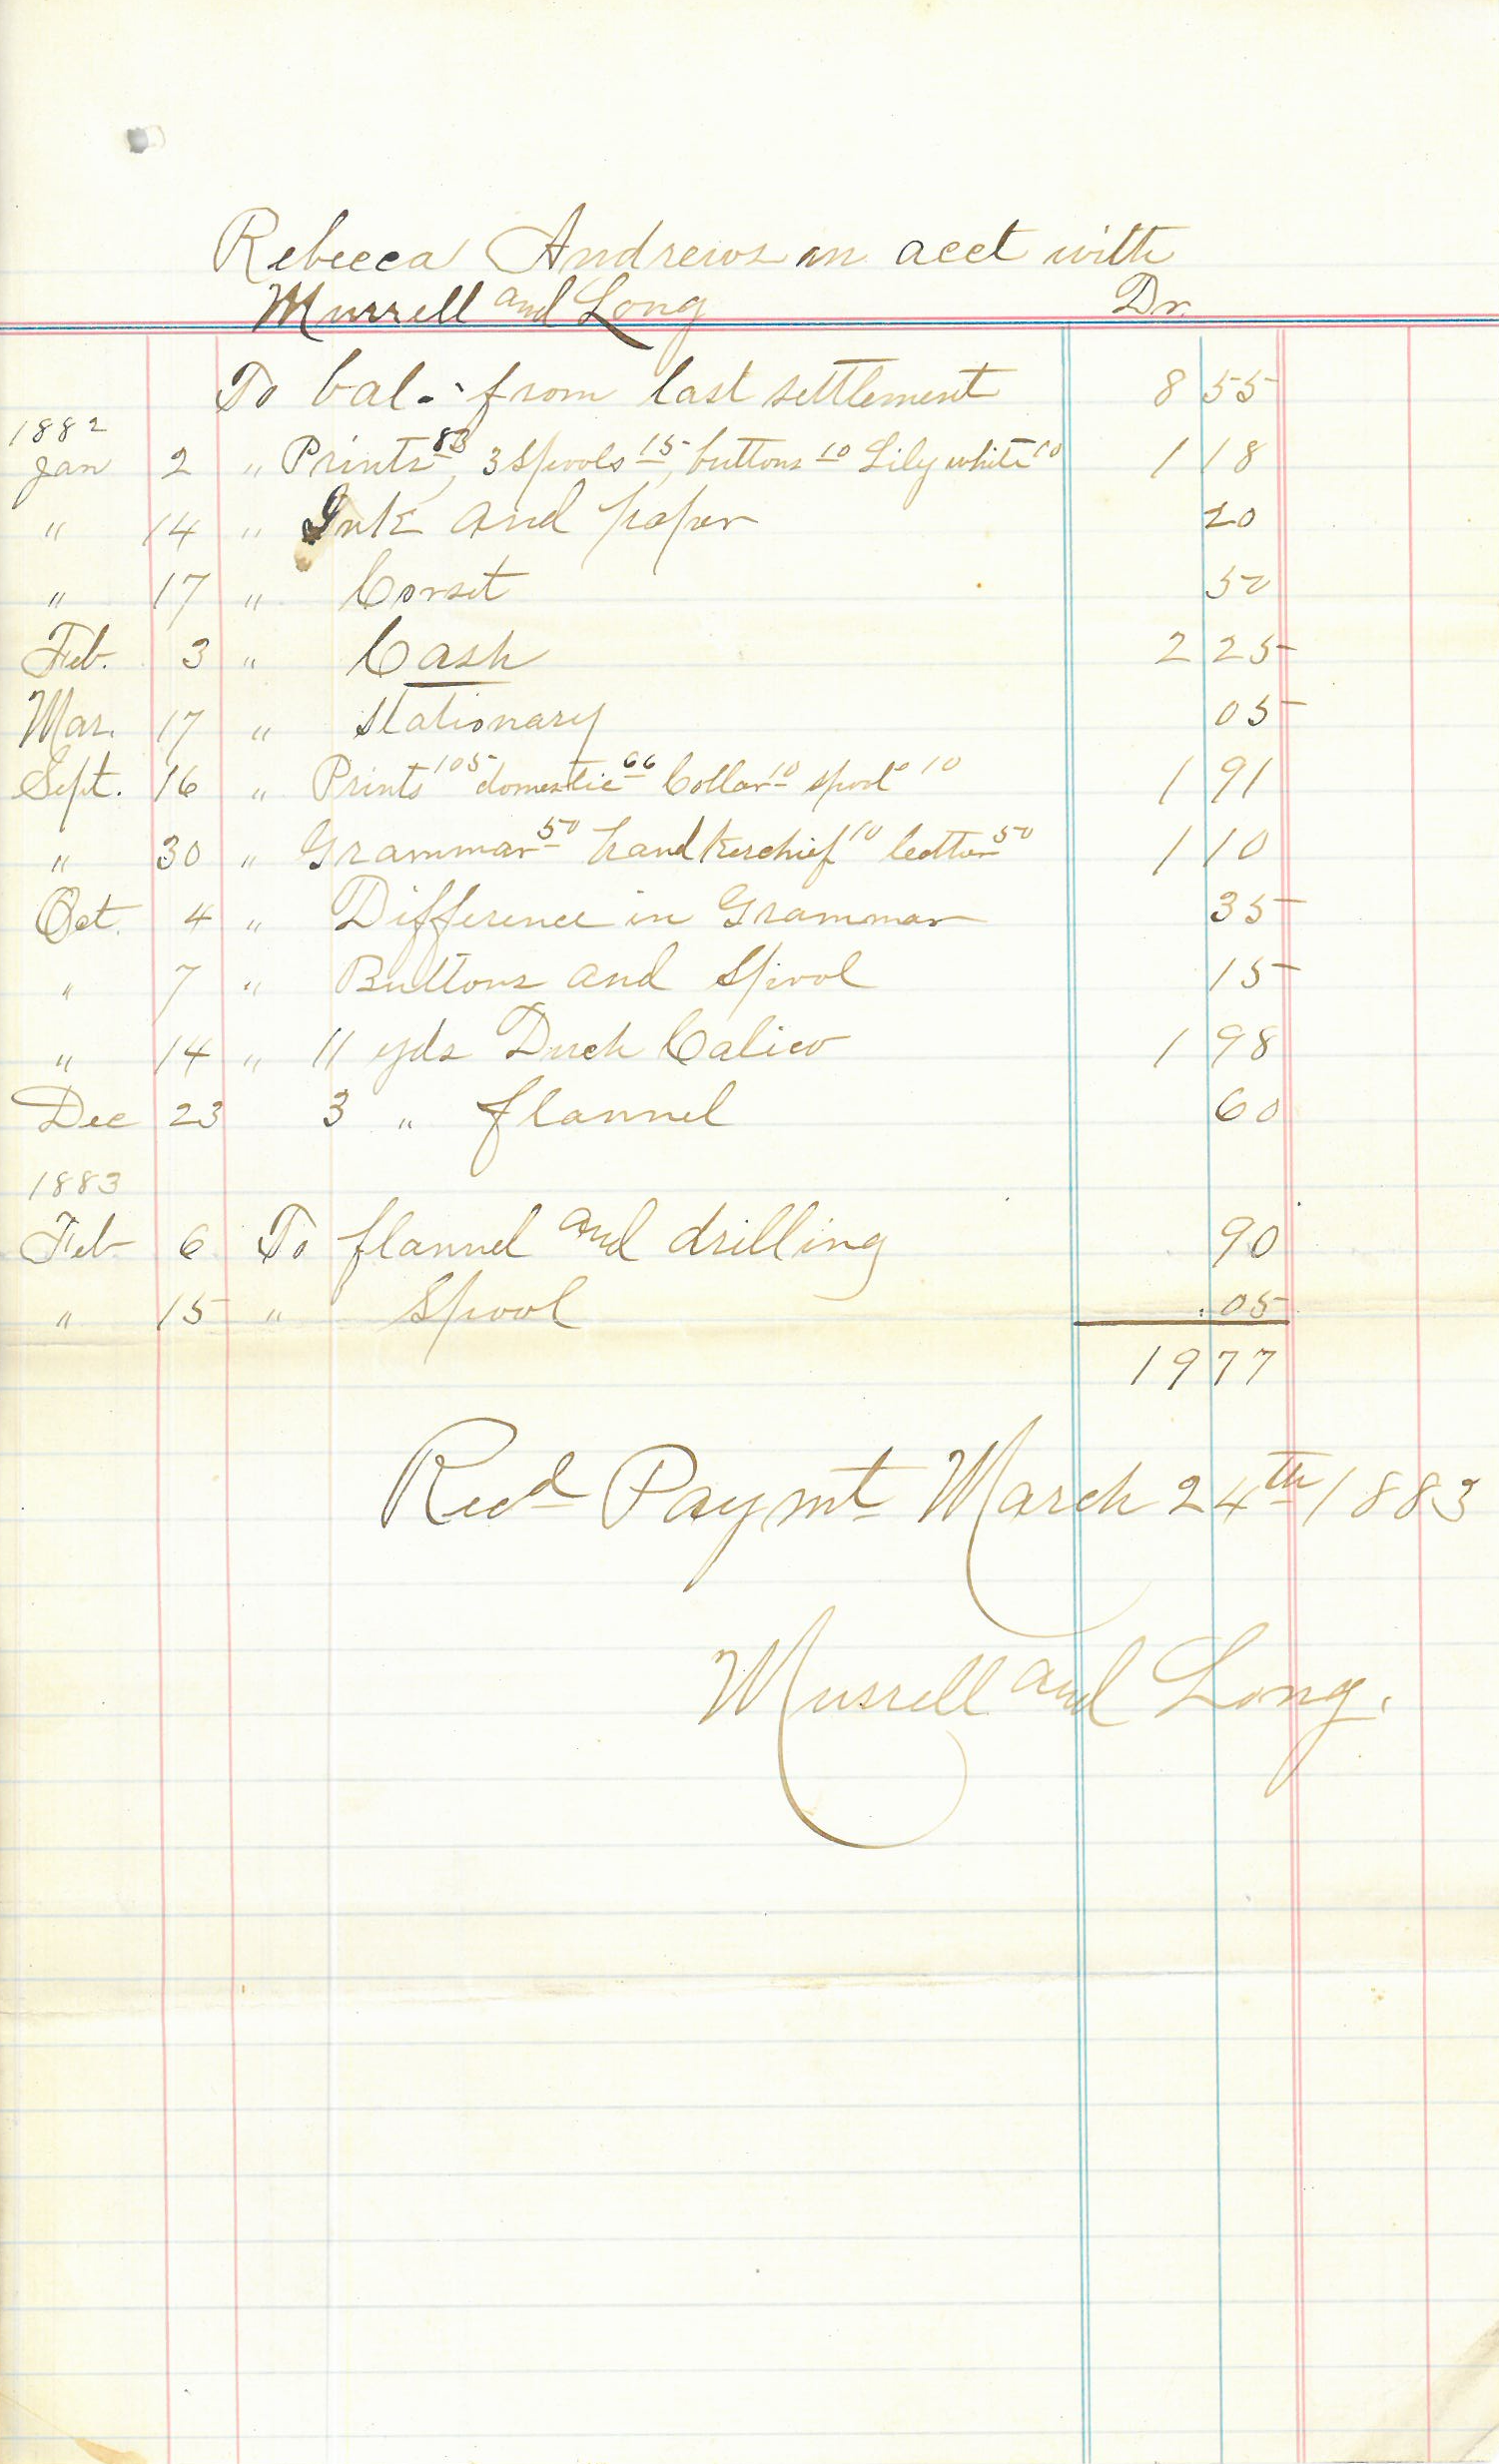 Rebecca Andrews in acct with
Murrell and Long Dr.
To bal. from last settlement 8 55
1882
Jan 2 " Prints 83, 3 Spools 15, buttons 10 Lily white 10 1 18
" 14 " Ink and paper 20
" 17 " Corset 50
Feb. 3 " Cash 2 25
Mar. 17 " Stationary 05
Sept. 16 " Prints 105 domestic 66 Collar 10 spools 10 1 91
" 30 " Grammar 50 handkerchief 10 cotton 50 1 10
Oct. 4 " Difference in Grammar 35
" 7 " Buttons and Spool 15
" 14 " 11 yds Calico 1 98
Dec 23 3 " flannel 60
1883
Feb 6 To flannel and drilling 90
" 15 " Spool .05
19 77
Recd Paymt March 24th 1883
Murrell and Long.